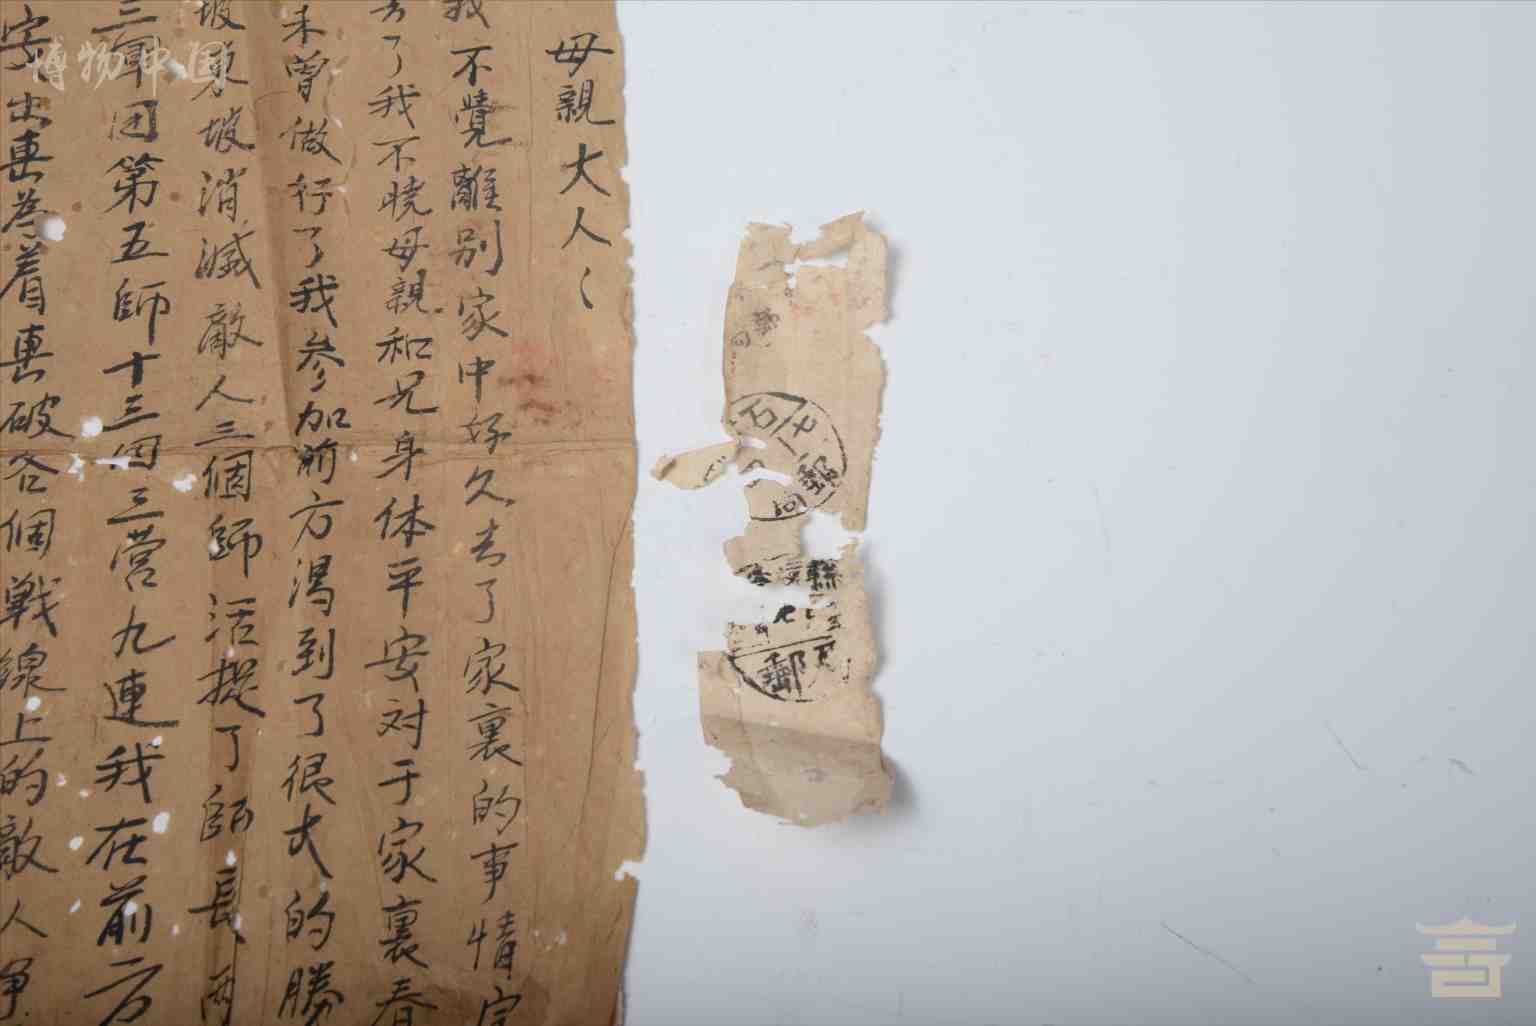 母親大人
我不覺離別家中好久去了家裏的事情
去了我不曉母親和兄身体平安对于家裏春
未曾做行了我参加前方淂到了很大的勝
坡東坡消滅敵人三個師活捉了師長两
三軍团第五師十三团三營九連我在前方
安出
破各個戰線上的敵人爭
博物中国
郵
縣
郵